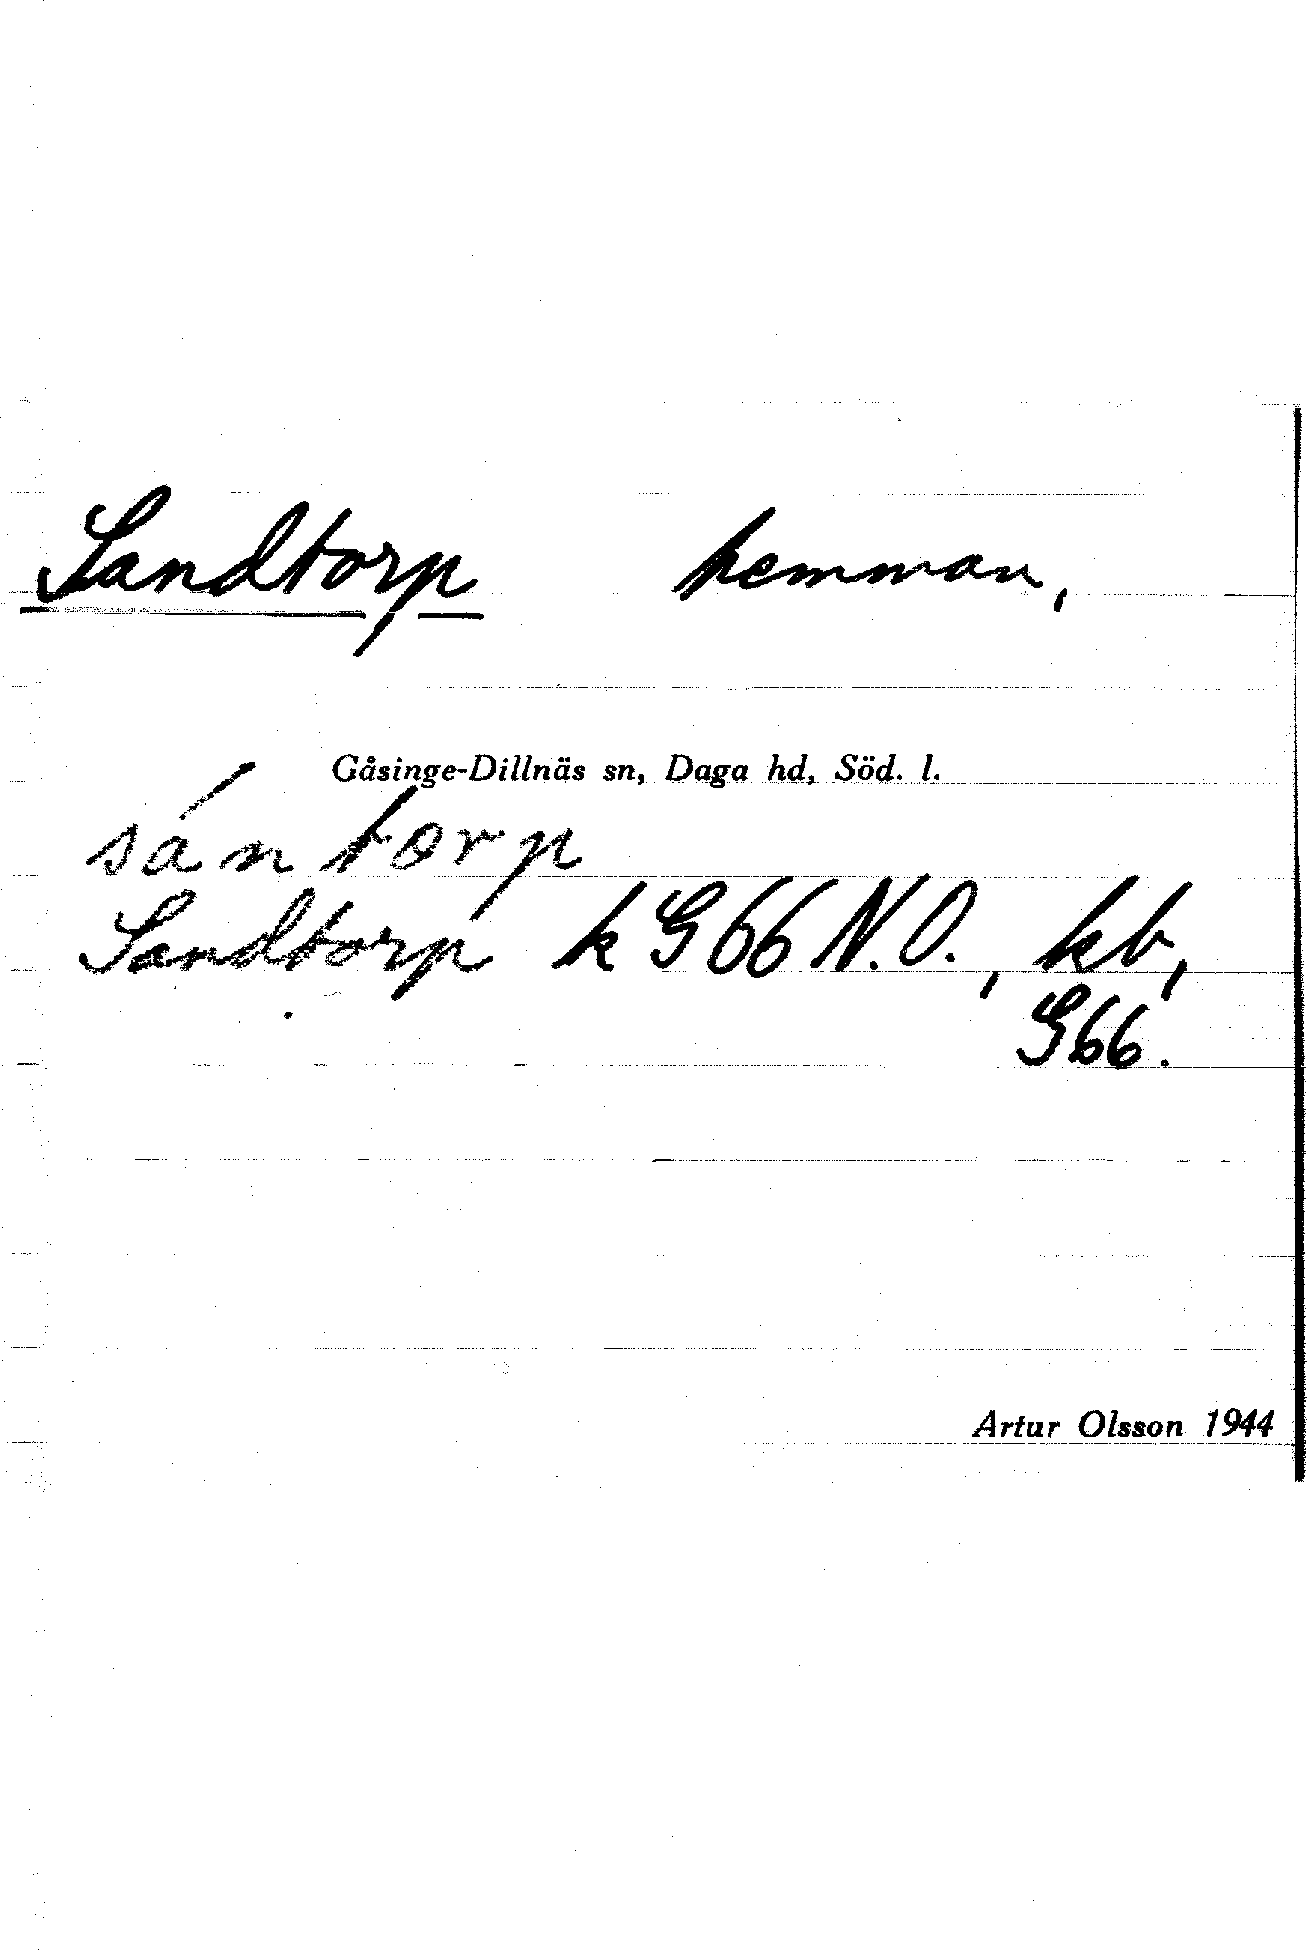 Sandtorp hemman,
Gåsinge-Dillnäs sn, Daga hd, Söd. l.
sántorp
Sandtorp k G66 N.O., kb,
G66.
Artur Olsson 1944